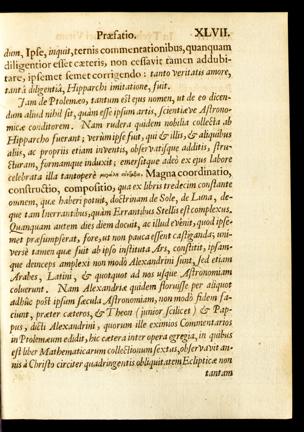 Præfatio. XLVII.
dum, Ipse, inquit, ternis commentationibus, quanquam
diligentior esset cæteris, non cessavit tamen addubi-
tare, ipsemet semet corrigendo: tanto veritatis amore,
tantâ diligentiâ, Hipparchi imitatione, fuit.
Jam de Ptolemæo, tantum est ejus nomen, ut de eo dicen-
dum aliud nihil sit, quàm esse ipsum artis, scientiæve Astrono-
micæ conditorem. Nam rudera quidem nobilia collecta ab
Hipparcho fuerant; verùm ipse fuit, qui & illis, & aliquibus
aliis, ac propriis etiam inventis, observatisque additis, stru-
cturam, formamque induxit; emersitque adeò ex ejus labore
celebrata illa tantoperè μεγάλη σύνταξις. Magna coordinatio,
constructio, compositio, qua ex libris tredecim constante
omnem, quæ haberi potuit, doctrinam de Sole, de Luna, de-
que tam Inerrantibus, quàm Errantibus Stellis est complexus.
Quanquam autem dies diem docuit, ac illud evênit, quod ipse-
met præsumpserat, fore, ut non pauca essent castiganda; uni-
versè tamen quæ fuit ab ipso instituta Ars, constitit, ipsam-
que deinceps amplexi non modò Alexandrini sunt, sed etiam
Arabes, Latini, & quotquot ad nos usque Astronomiam
coluerunt. Nam Alexandriæ quidem floruisse per aliquot
adhûc pòst ipsum sæcula Astronomiam, non modò fidem fa-
ciunt, præter cæteros, & Theon (junior scilicet) & Pap-
pus, dicti Alexandrini, quorum ille eximios Commentarios
in Ptolemæum edidit, hic cætera inter opera egregia, in quibus
est liber Mathematicarum collectionum sextus, observavit an-
nis à Christo circiter quadringentis obliquitatem Eclipticæ non
tantam